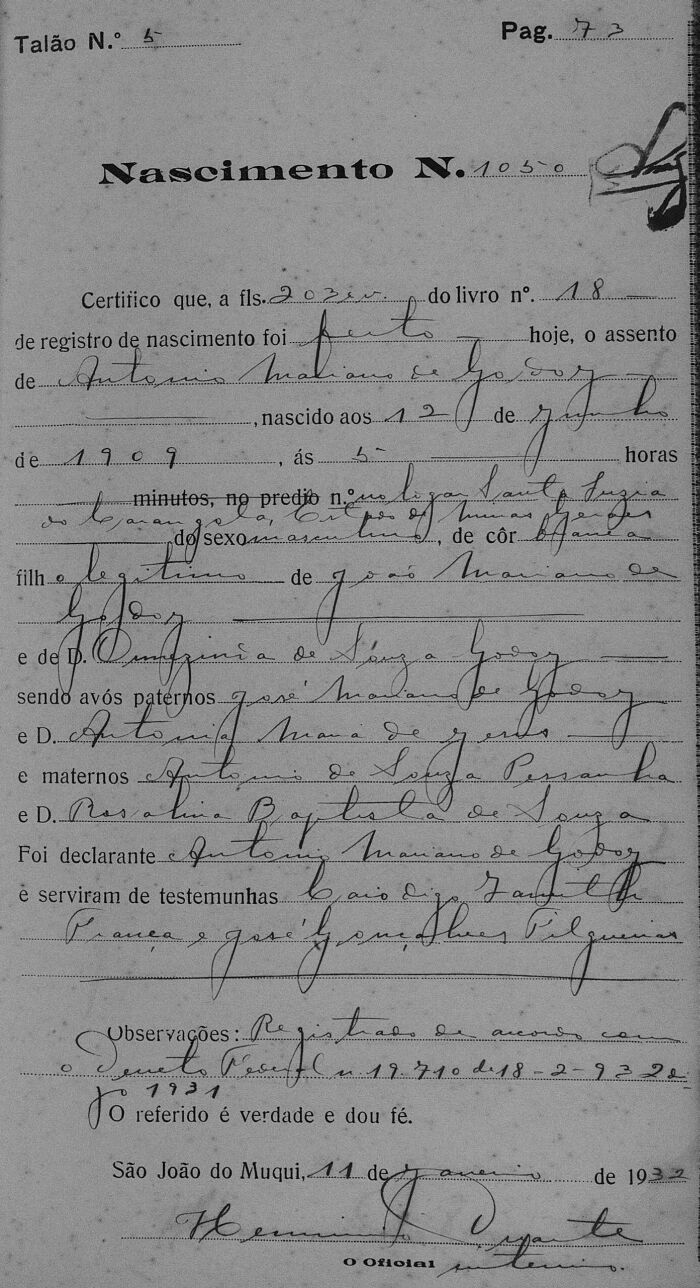 Talão N.º 5 Pag. 73
Nascimento N. 1050
Certifico que, a fls. 203 ev. do livro nº. 18
de registro de nascimento foi feito hoje, o assento
de Antonio Mariano de Godoy
, nascido aos 12 de Junho
de 1909 , ás 5 horas
minutos, no predio n.º no logar Santa Luzia
do Carangola, Estado de Minas Geraes
do sexo masculino, de côr branca
filho legitimo de João Mariano de
Godoy
e de D. de Souza Godoy
sendo avós paternos José Mariano de Godoy
e D. Antonia Maria de Jesus
e maternos Antonio de Souza Pessanha
e D. Rosalina Baptista de Souza
Foi declarante Antonio Mariano de Godoy
e serviram de testemunhas Caio digo
França e José Gonçalves Filgueiras
Observações: Registrado de accordo com
o Decreto Federal n. 19.710 de 18-2-932 di
go 1931
O referido é verdade e dou fé.
São João do Muqui, 11 de Janeiro de 1932
Duarte
O Oficial interino.